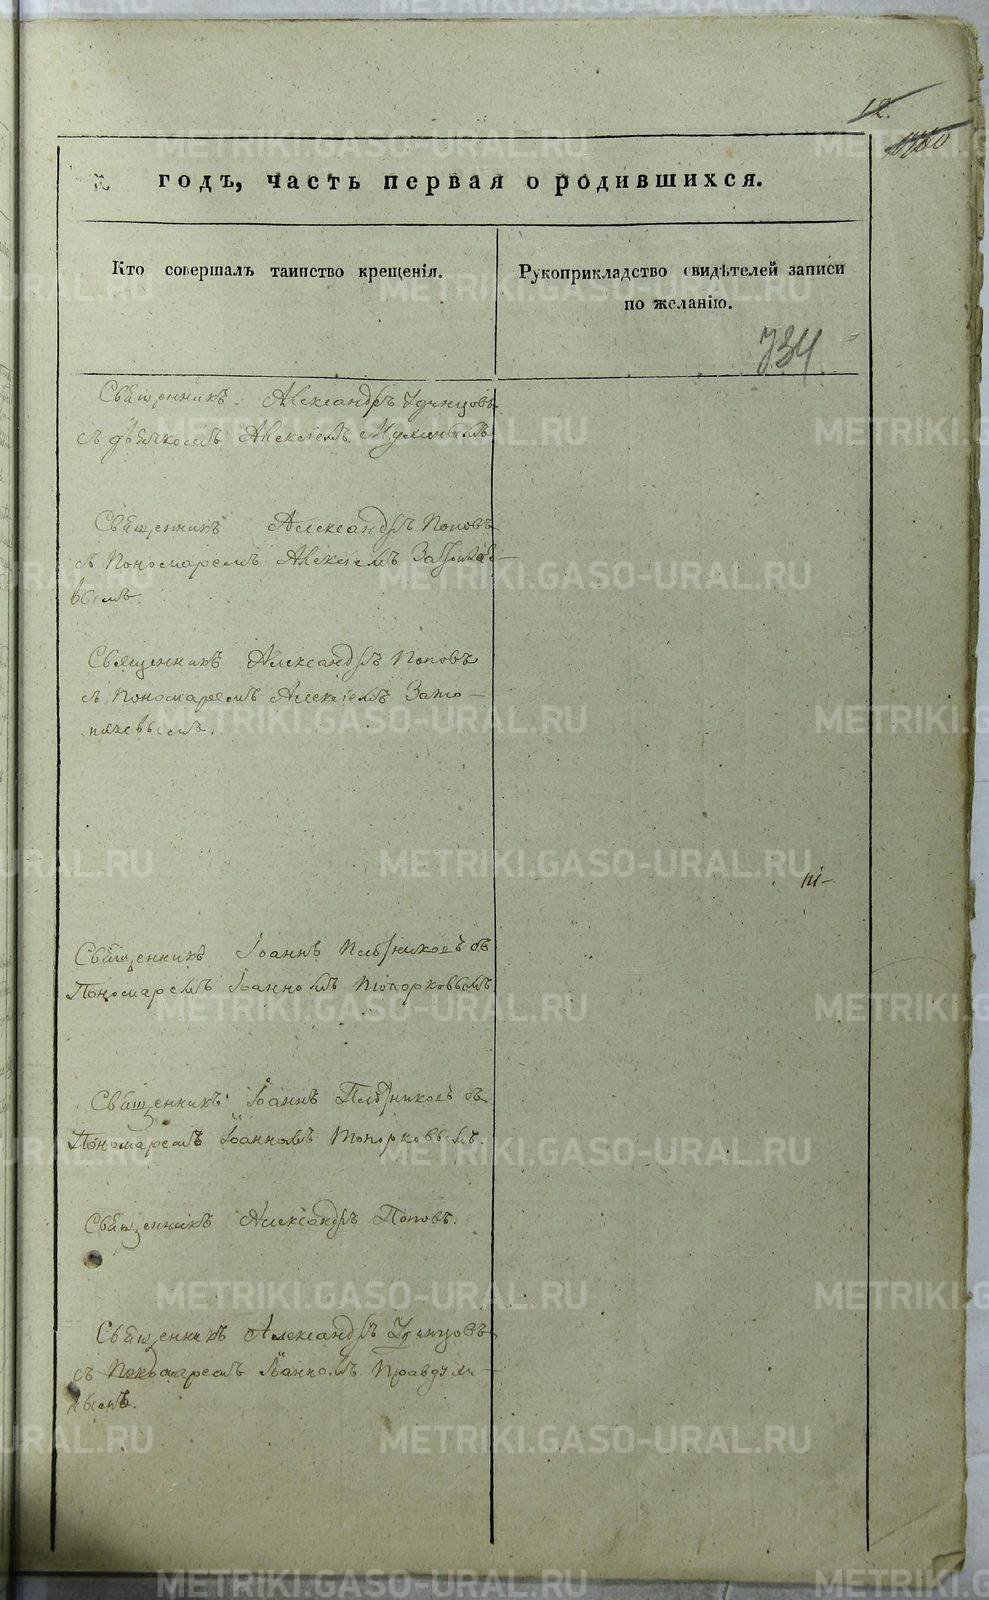 12.
й годъ, часть первая о родившихся.
Кто совершалъ таинство крещенія.
Рукоприкладство свидѣтелей записи
по желанію.
734
Священникъ Александръ Удинцовъ
съ дьячкомъ Алексіемъ
Священникъ Александръ Поповъ
съ Пономаремъ Алексіемъ
вымъ.
Священникъ Александръ Поповъ
съ Пономаремъ Алексіемъ Зато-
пляевымъ.
Священникъ Іоаннъ съ
Пономаремъ Іоанномъ Топорковымъ
Священникъ Іоаннъ съ
Пономаремъ Іоанномъ Топорковымъ.
Священникъ Александръ Поповъ.
Священникъ Александръ Удинцовъ
съ Пономаремъ Іоанномъ Правдуми-
нымъ.
METRIKI.GASO-URAL.RU